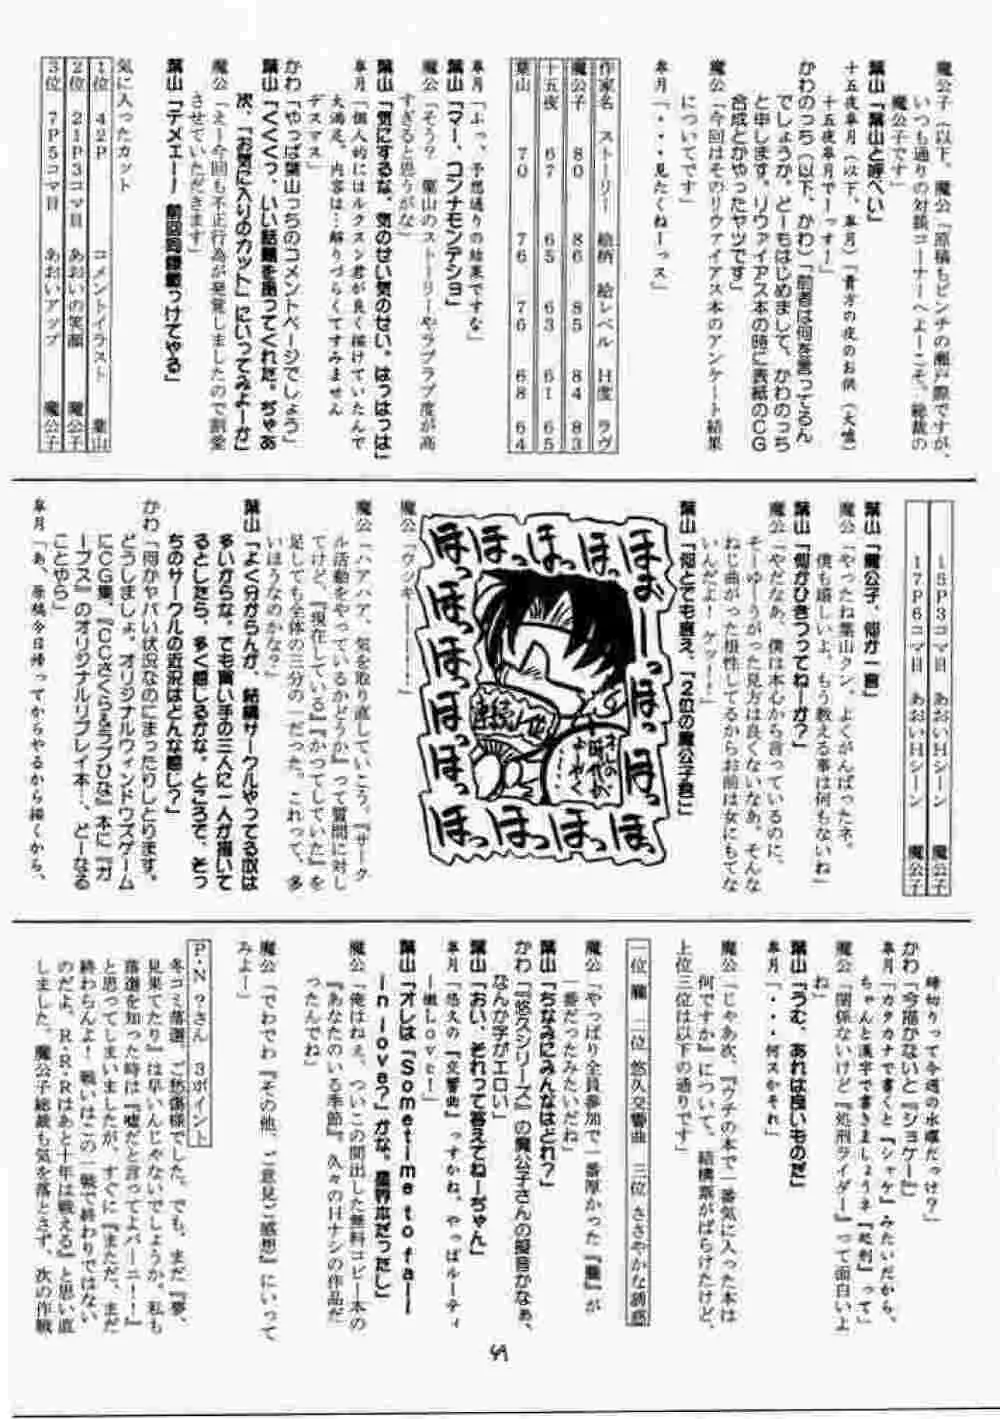 魔公子（以下、魔公「原稿もピンチの瀬戸際ですが、
いつも通りの対談コーナーへよーこそ。総裁の
魔公子です」
葉山「葉山と呼べい」
十五夜皐月（以下、皐月）「貴方の夜のお供（大嘘）
十五夜皐月でーっす！」
かわのっち（以下、かわ）「前者は何を言ってるん
でしょうか。どーもはじめまして、かわのっち
と申します。リヴァイアス本の時に表紙のCG
合成とかやったヤツです」
魔公「今回はそのリヴァイアス本のアンケート結果
についてです」
皐月「・・・見たくねーっス」
作家名 ストーリー 絵柄 絵レベル H度 ラヴ
魔公子 80 86 85 84 83
十五夜 67 65 63 61 65
葉山 70 76 76 68 64
皐月「ふっ、予想通りの結果ですな」
葉山「マー、コンナモンデショ」
魔公「そう？ 葉山のストーリーやラブラブ度が高
すぎると思うがな」
葉山「気にするな、気のせい気のせい。はっはっは」
皐月「個人的にはルクスン君が良く描けていたんで
大満足。内容は…解りづらくてすみません
デスマス」
かわ「やっぱ葉山っちのコメントページでしょう」
葉山「くくくっ、いい話題を振ってくれた。ぢゃあ
次、『お気に入りのカット』にいってみよーか」
魔公「えー今回も不正行為が発覚しましたので割愛
させていただきます」
葉山「テメェーー 前回同様載っけてやる」
気に入ったカット
1位 42P コメントイラスト 葉山
2位 21P3コマ目 あおいの笑顔 魔公子
3位 7P5コマ目 あおいアップ 魔公子
15P3コマ目 あおいHシーン 魔公子
17P6コマ目 あおいHシーン 魔公子
葉山「魔公子、何か一言」
魔公「やったね葉山クン、よくがんばったネ。
僕も嬉しいよ。もう教える事は何もないね」
葉山「何かひきつってねーか？」
魔公「やだなあ、僕は本心から言っているのに、
そーゆーうがった見方は良くないなあ。そんな
ねじ曲がった根性してるからお前は女にもてな
いんだよ！ ゲッー！」
葉山「何とでも言え、『2位の魔公子君』」
ほぉーーっほっほっほっほっ
ほっほっほっほっ
魔公「ウッキーーーー！」
魔公「ハアハア、気を取り直していこう。『サーク
ル活動をやっているかどうか』って質問に対し
てけど、『現在している』『かつてしていた』を
足しても全体の三分の一だった。これって、多
いほうなのかな？」
葉山「よく分からんが、結構サークルやってる奴は
多いからな。でも買い手の三人に一人が描いて
るとしたら、多く感じるかな。ところで、そっ
ちのサークルの近況はどんな感じ？」
かわ「何かヤバい状況なのにまったりしとります。
どうしましょ。オリジナルウィンドウズゲーム
にCG集、『CCさくら&ラブひな』本に『ガ
ープス』のオリジナルリプレイ本…、どーなる
ことやら」
皐月「あ、原稿今日帰ってからやるから描くから、
締切りって今週の水曜だっけ？」
かわ「今描かないと『ショケー』」
皐月「カタカナで書くと『シャケ』みたいだから、
ちゃんと漢字で書きましょうネ『処刑』って」
魔公「関係ないけど『処刑ライダー』って面白いよ
ね」
葉山「うむ、あれは良いものだ」
皐月「・・・何スかそれ」
魔公「じゃあ次、『ウチの本で一番気に入った本は
何ですか』について、結構票がばらけたけど、
上位三位は以下の通りです」
一位 朧 二位 悠久交響曲 三位 ささやかな誘惑
魔公「やっぱり全員参加で一番厚かった『朧』が
一番だったみたいだね」
葉山「ちなみにみんなはどれ？」
かわ「『悠久シリーズ』の魔公子さんの擬音かなぁ、
なんか字がエロい」
葉山「おい、それって答えてねーぢゃん」
皐月「悠久の『交響曲』っすかね。やっぱルーティ
ー嬢Love！」
葉山「オレは『Sometime to fall
in love？』かな。厚い本だったし」
魔公「俺はねぇ、ついこの間出した無料コピー本の
『あなたのいる季節』。久々のHナシの作品だ
ったんでね」
魔公「でわでわ『その他、ご意見ご感想』にいって
みよー」
P・N ？さん 3ポイント
冬コミ落選、ご愁傷様でした。でも、まだ『夢、
見果てたり』は早いんじゃないでしょうか。私も
落選を知った時は『嘘だと言ってよバーニィ！』
と思ってしまいましたが、すぐに『まだだ、まだ
終わらんよ！ 戦いはこの一戦で終わりではない
のだよ。R・R・Rはあと十年は戦える』と思い直
しました。魔公子総裁も気を落とさず、次の作戦
49